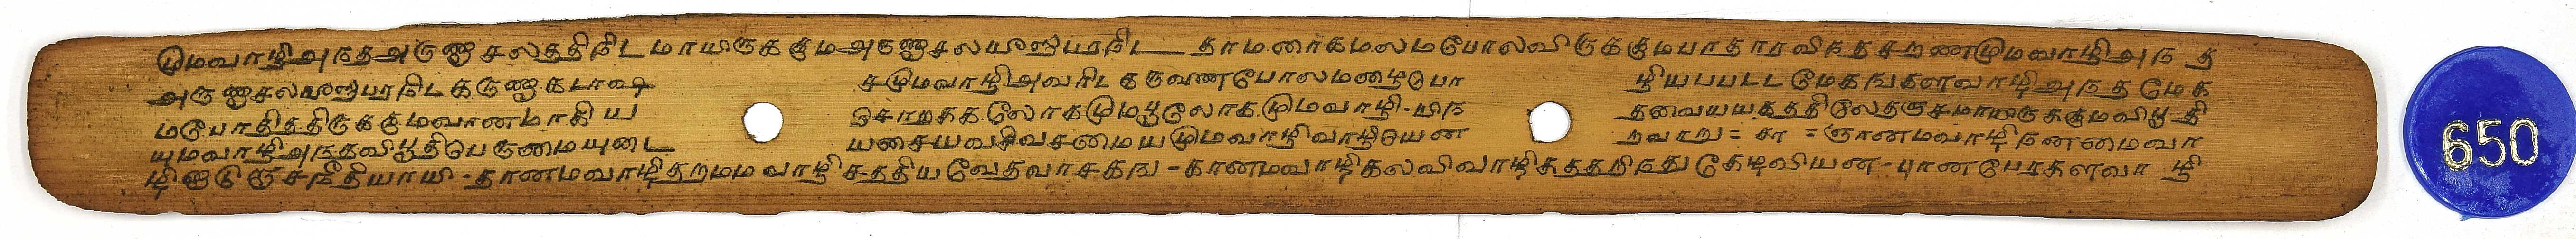 முமவாழிஅநதஅருணாசலததினிடமாயிருககுமஅருணாசலயீஸுபரனிட தாமரைகமலமபோலவிருககுமபாதாரவிநதசறணமுமவாழிஅந த
அருணாசலயீஸுபரனிடகருணாகடாஷ சமுமவாழிஅவரிட கருவணபோலமணடிபொ ழியபபடட மேகஙகளவாழிஅநத மேக
மபோதிததிருககுமவானமாகி ய சொறகக லோகமுமபூலோகமுமவாழி-யிந தவையயகததிலேதஞசமாயிருககுமவிபூ தி
யுமவாழிஅநதவிபூதிபெருமையுடை யசைவசிவசமையமுமவாழிவாழியென றவாறு = சா = ஞானமவாழிநனமைவா
ழி சநநீதியாயி-தானமவாழிதறமம வாழி சததிய வேதவாசகங-கானமவாழிகலவிவாழிசுததறிநது கேழவியன-பான பேரகளவா ழி
650